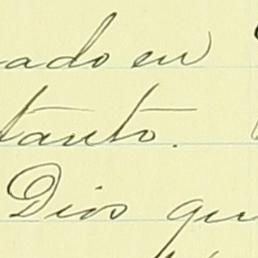 ado en
tanto.
Dios qu